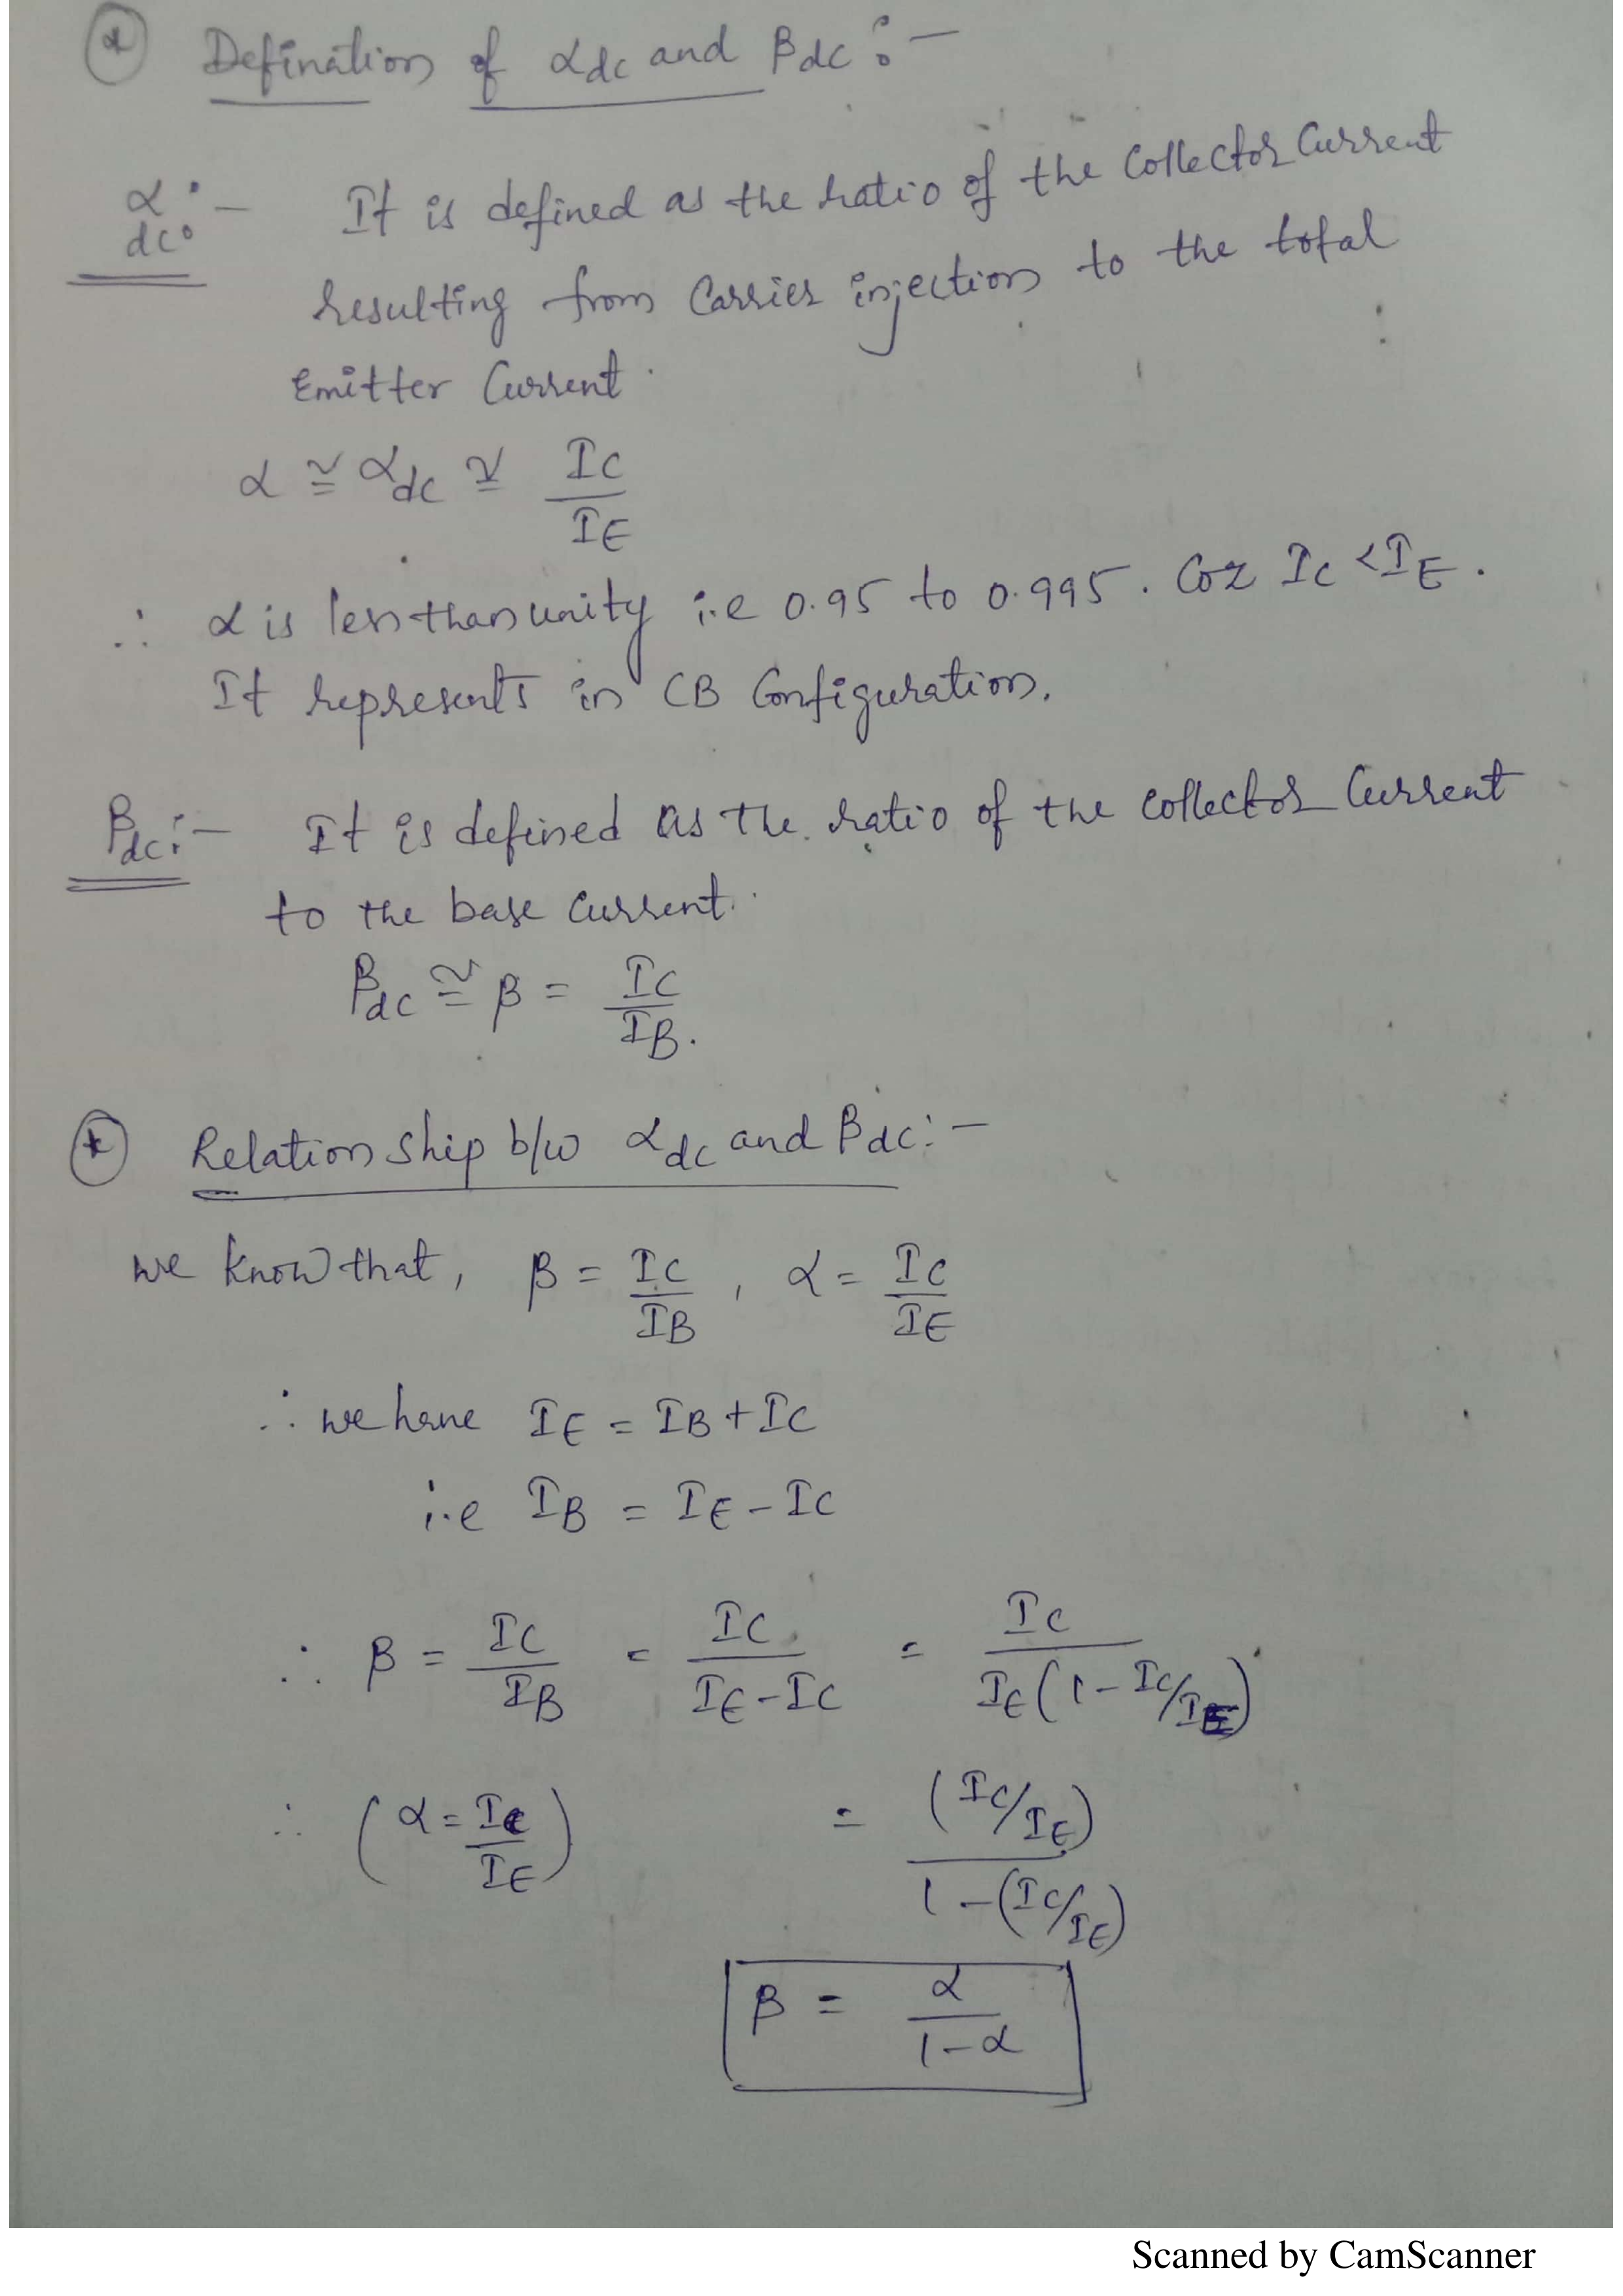 * Defination of αdc and βdc :-
αdc :- It is defined as the ratio of the Collector Current
resulting from Carrier injection to the total
Emitter Current.
α ≅ αdc ≅ IC/IE
∴ α is less than unity i.e 0.95 to 0.995. Coz IC < IE.
It represents in CB Configuration.
βdc :- It is defined as the ratio of the collector Current
to the base Current.
βdc ≅ β = IC/IB.
* Relation ship b/w αdc and βdc :-
we know that, β = IC/IB , α = IC/IE
∴ we have IE = IB + IC
i.e IB = IE - IC
∴ β = IC/IB = IC/(IE - IC) = IC/(IE(1 - IC/IE))
∴ (α = IC/IE) = (IC/IE)/(1 - (IC/IE))
β = α/(1 - α)
Scanned by CamScanner